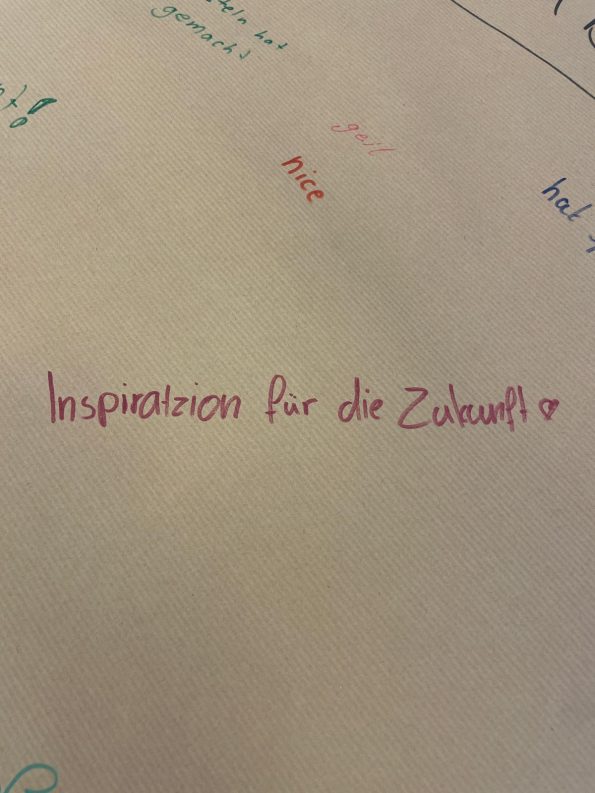 hat
gemacht
geil
nice
hat
Inspiratzion für die Zukunft ♡